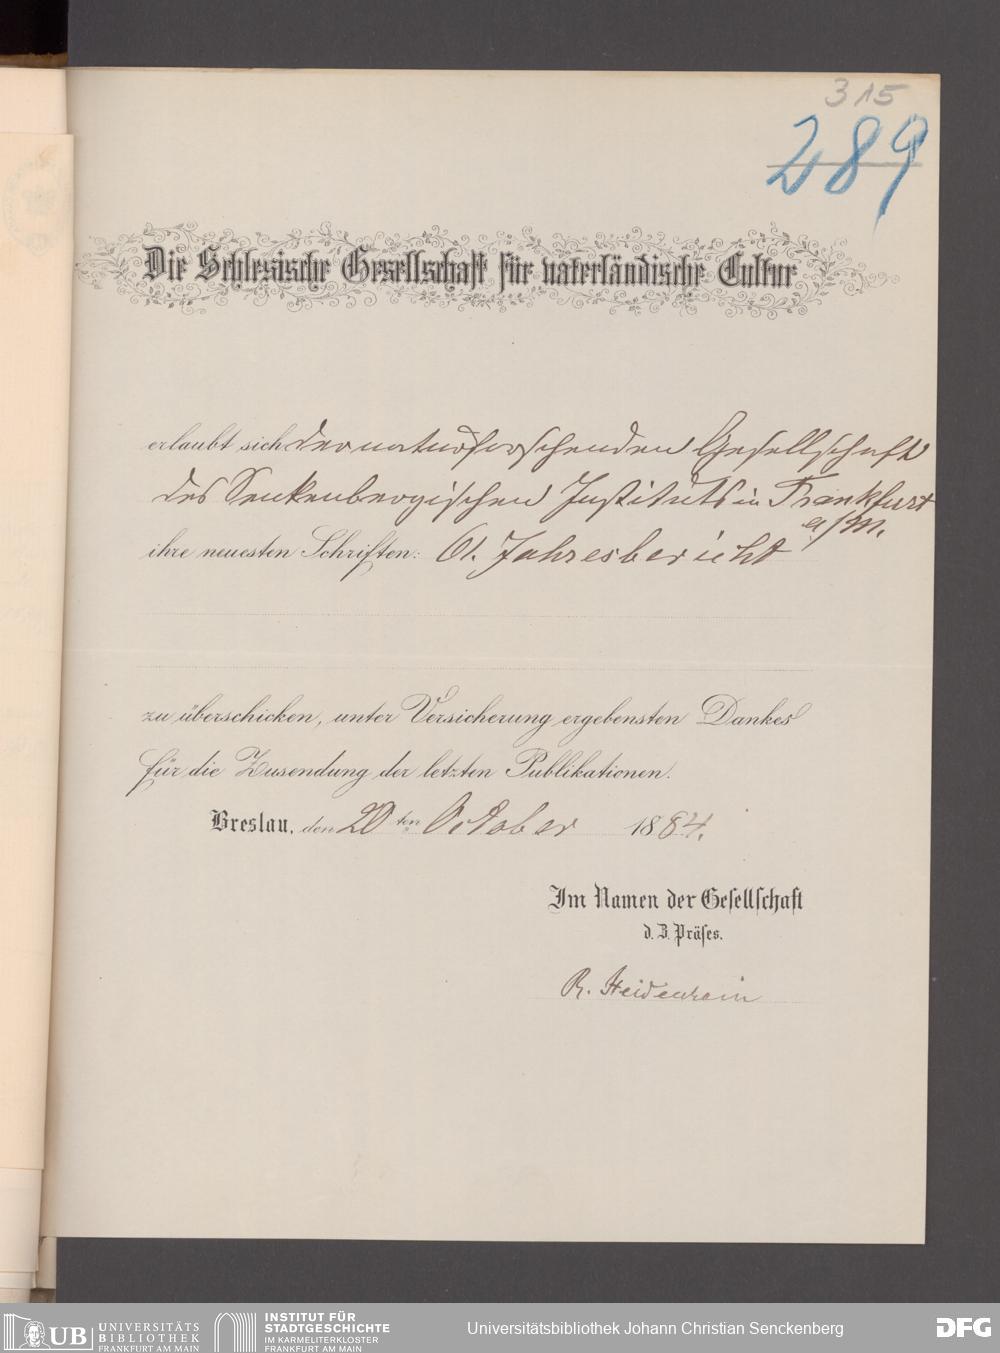 315
289
Die Schlesische Gesellschaft für vaterländische Cultur
erlaubt sich der naturforschenden Gesellschaft
des Senkenbergischen Instituts in Frankfurt
a/M.
ihre neuesten Schriften: 61. Jahresbericht
zu überschicken, unter Versicherung ergebensten Dankes
für die Zusendung der letzten Publikationen.
Breslau, den 20ten October 1884.
Im Namen der Gesellschaft
d. Z. Präses.
R. Heidenhain
UB UNIVERSITÄTS
BIBLIOTHEK
FRANKFURT AM MAIN
INSTITUT FÜR
STADTGESCHICHTE
IM KARMELITERKLOSTER
FRANKFURT AM MAIN
Universitätsbibliothek Johann Christian Senckenberg
DFG